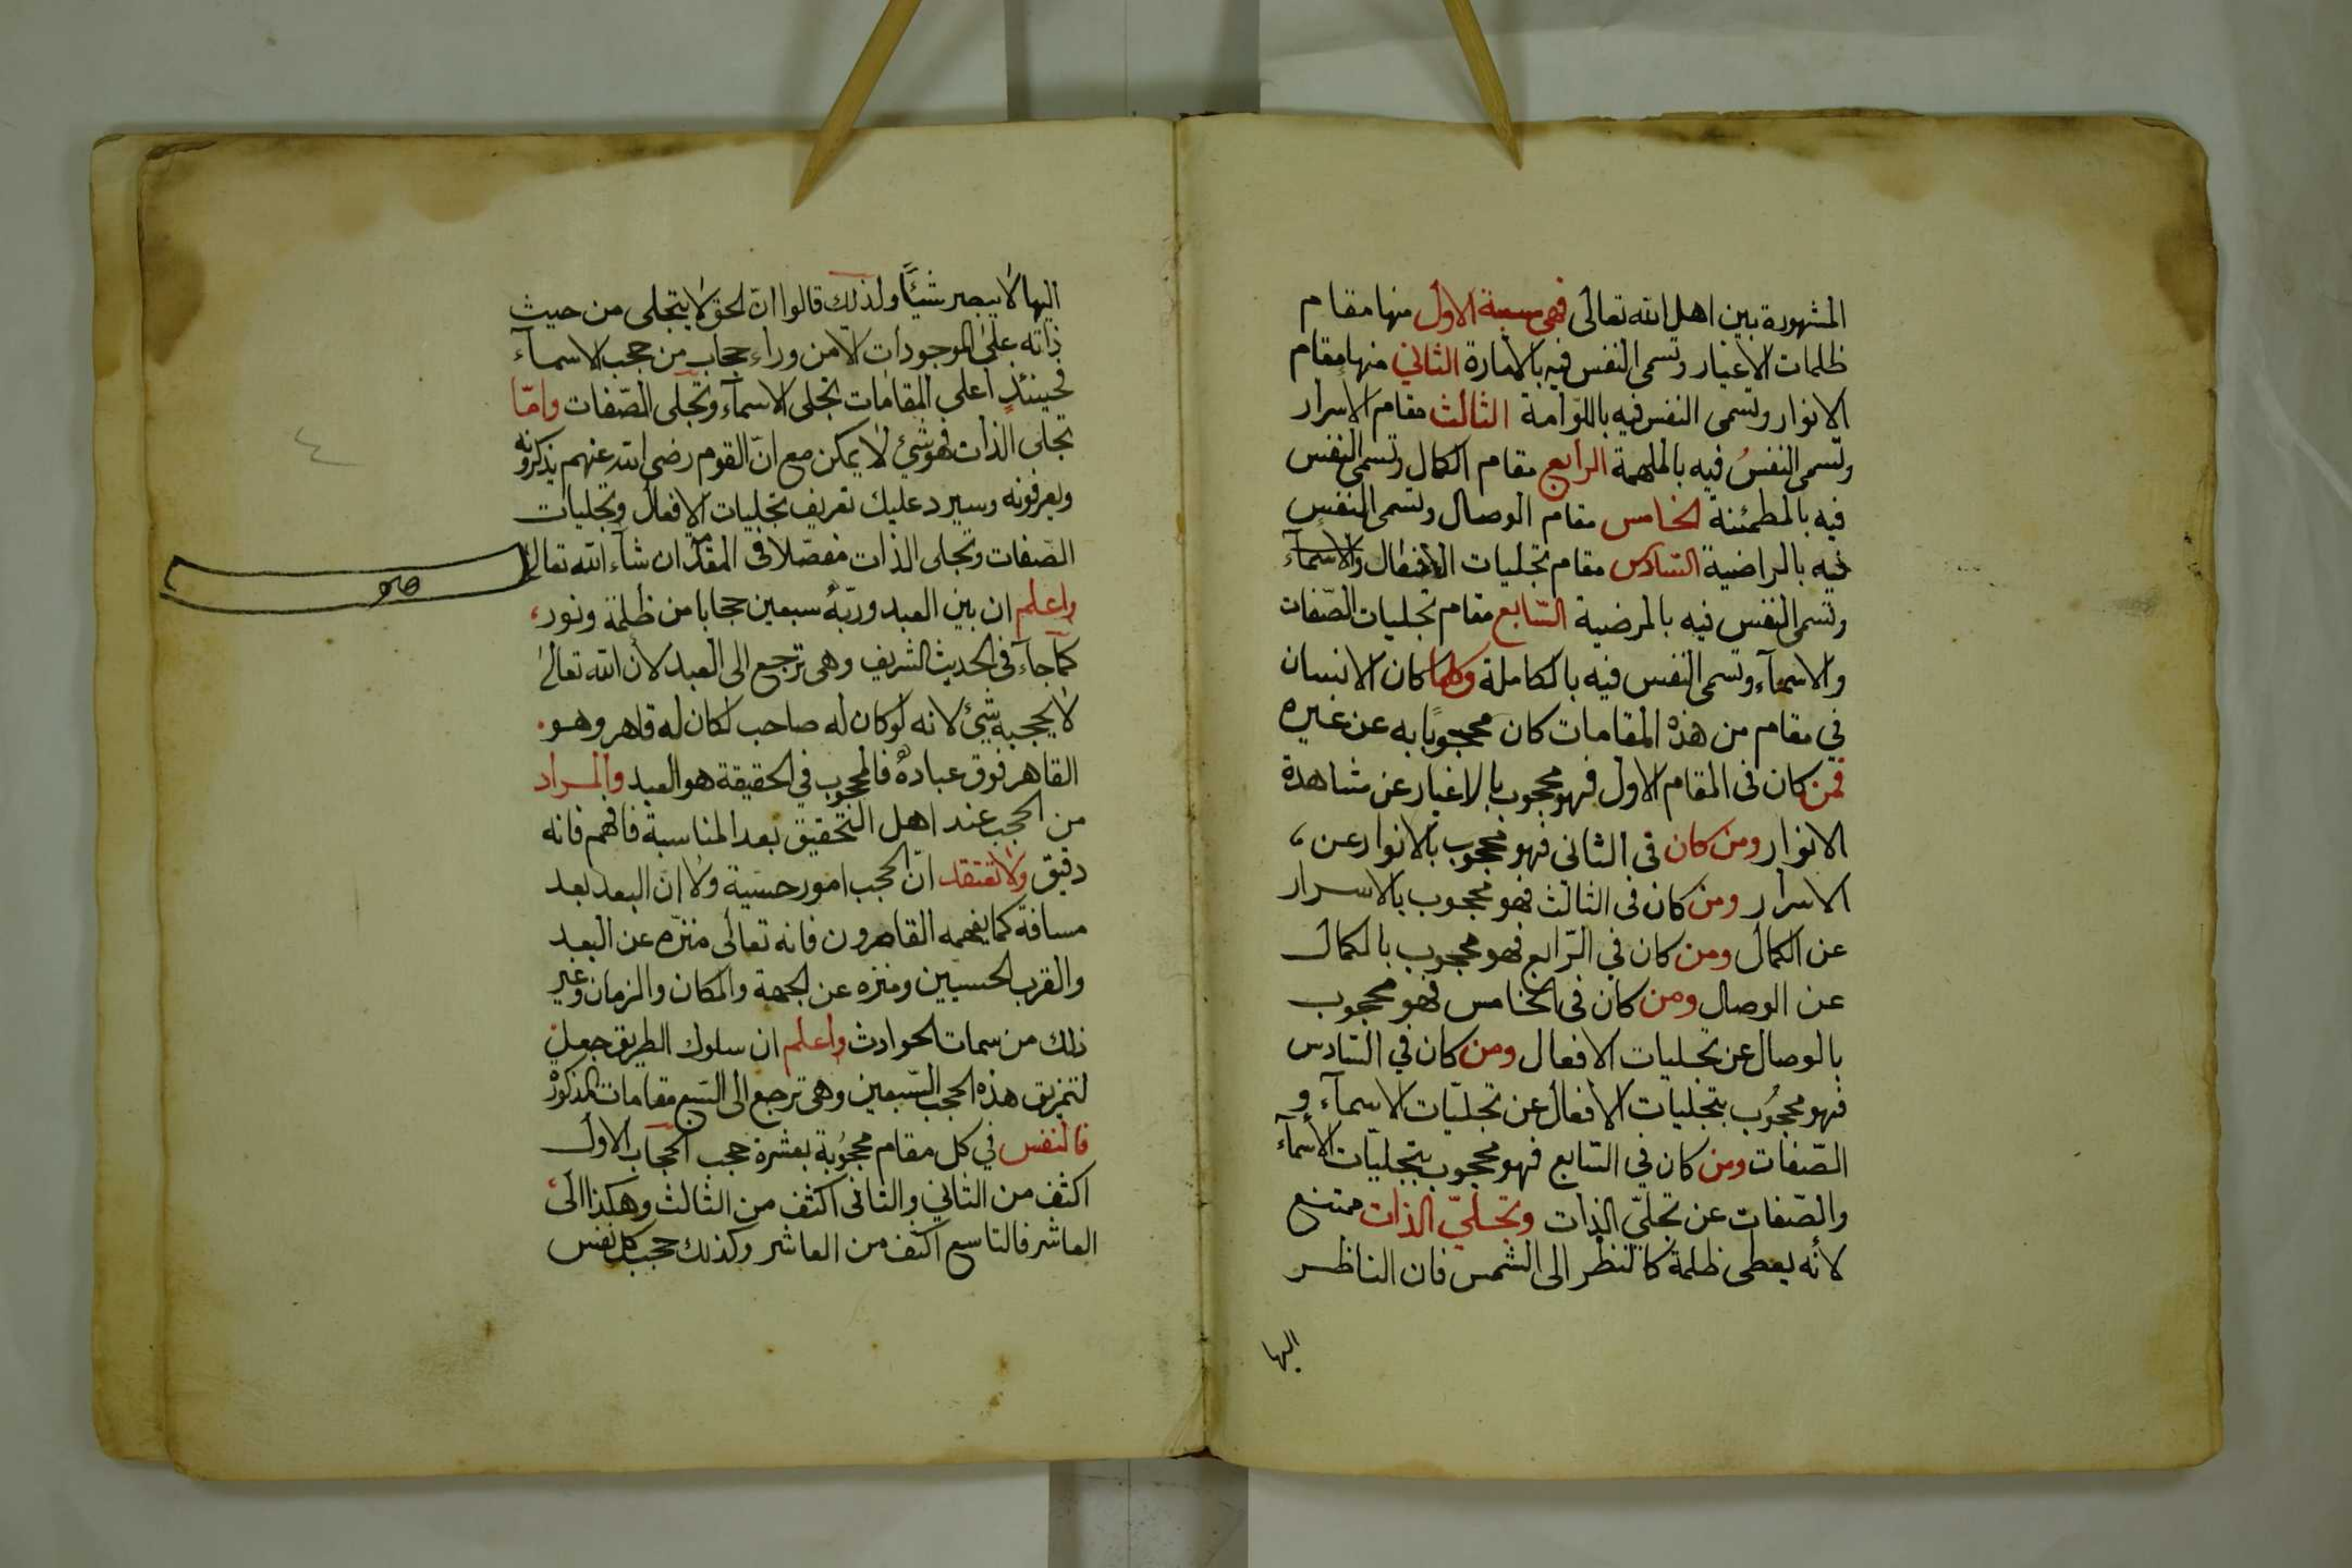 المشهورة بين اهل الله تعالى فهى سبعة الاول منها مقام
ظلمات الاغيار وتسمى النفس فيه بالامارة الثاني منها مقام
الانوار وتسمى النفس فيه باللوّامة الثالث مقام الاسرار
وتسمى النفسُ فيه بالملهمة الرابع مقام الكمال وتسمى النفس
فيه بالمطمئنة الخامس مقام الوصال وتسمى النفس
فيه بالراضية السّادس مقام تجليات الافعال والاسمآء
وتسمى النفس فيه بالمرضية السّابع مقام تجليات الصّفات
والاسمآء وتسمى النفس فيه بالكاملة وكلما كان الانسان
في مقام من هذه المقامات كان محجوبًا به عن غيره
فمن كان فى المقام الاول فهو محجوب بالاغيار عن مشاهدة
الانوار ومن كان فى الثانى فهو محجوب بالانوار عن،
الاسرار ومن كان فى الثالث فهو محجوب بالاسرار
عن الكمال ومن كان في الرّابع فهو محجوب بالكمال
عن الوصال ومن كان فى الخامس فهو محجوب
بالوصال عن تجليات الافعال ومن كان في السّادس
فهو محجُوب بتجليات الافعال عن تجليّات الاسمآء و
الصّفات ومن كان في السّابع فهو محجوب بتجليّات الأسمآء
والصّفات عن تجليّ الذات وتجليّ الذات ممتنع
لأنه يعطى ظلمة كالنظر الى الشمس فان الناظر
اليها
اليها لا يبصر شيئًا ولذلك قالوا انّ الحق لا يتجلى من حيث
ذاته على الموجودات الّا من وراء حجاب من حجب الاسمآء
فحينئذٍ اعلى المقامات تجلى الاسمآء وتجلى الصّفات وامّا
تجلى الذات فهو شيئ لا يمكن مع انّ القوم رضى الله عنهم يذكرونه
ويعرفونه وسيرد عليك تعريف تجليات الافعال وتجليات
الصّفات وتجلى الذات مفصّلا فى المقدّمة ان شآء الله تعالى
واعلم ان بين العبد وربّه سبعين حجابا من ظلمة ونور،
كما جآء فى الحديث الشريف وهى ترجع الى العبد لأن الله تعالى
لا يحجبه شيئ لانه لو كان له صاحب لكان له قاهر وهو.
القاهر فوق عباده فالمحجوب في الحقيقة هو العبد والمراد
من الحجب عند اهل التحقيق بعد المناسبة فافهم فانه
دقيق ولا تعتقد انّ الحجب امور حسّية ولا انّ البعد بعد
مسافة كما يفهمه القاصرون فانه تعالى منزّه عن البعد
والقرب الحسيين ومنزه عن الجهة والمكان والزمان وغير
ذلك من سمات الحوادث واعلم ان سلوك الطريق جعل
لتمزيق هذه الحجب السّبعين وهى ترجع الى السّبع مقامات المذكورة
فالنفس في كل مقام محجُوبة بعشرة حجب الحجاب الاول
اكثف من الثاني والثانى اكثف من الثالث وهكذا الى،
العاشر فالتاسع اكثف من العاشر وكذلك حجب كل نفس
٤